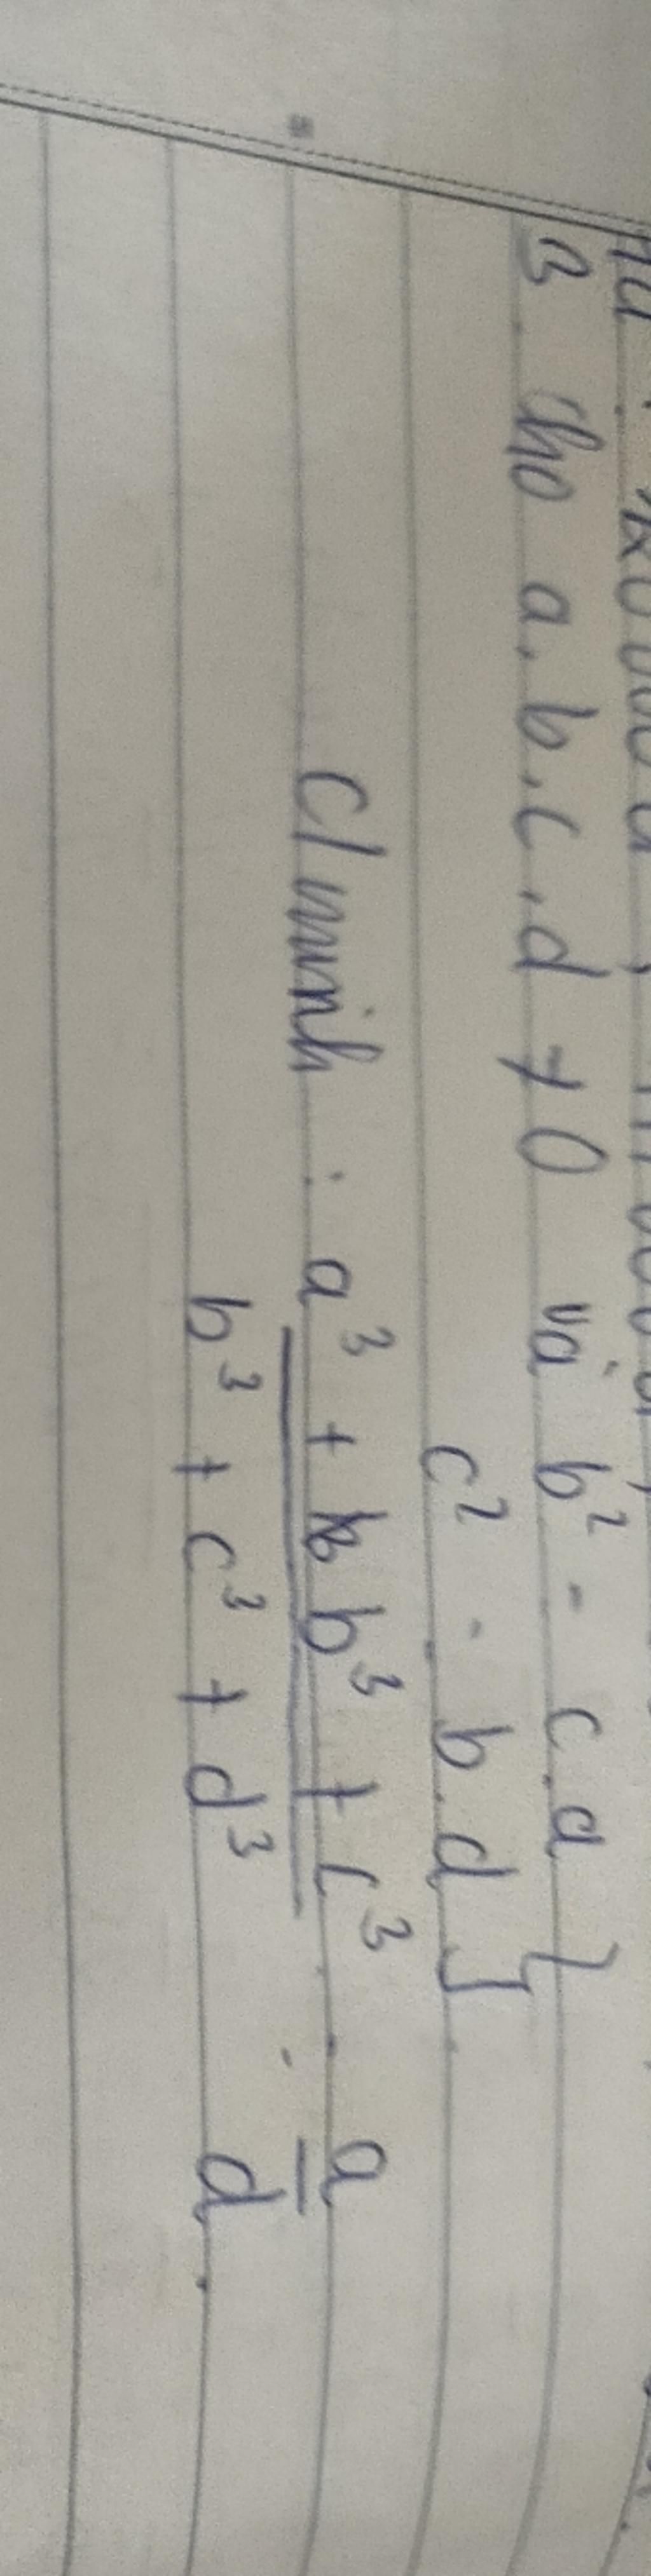 3 cho a, b, c, d ≠ 0 và b² = c.a }
c² = b.d }
C/minh : a³ + b³ + c³ = a
b³ + c³ + d³ d.